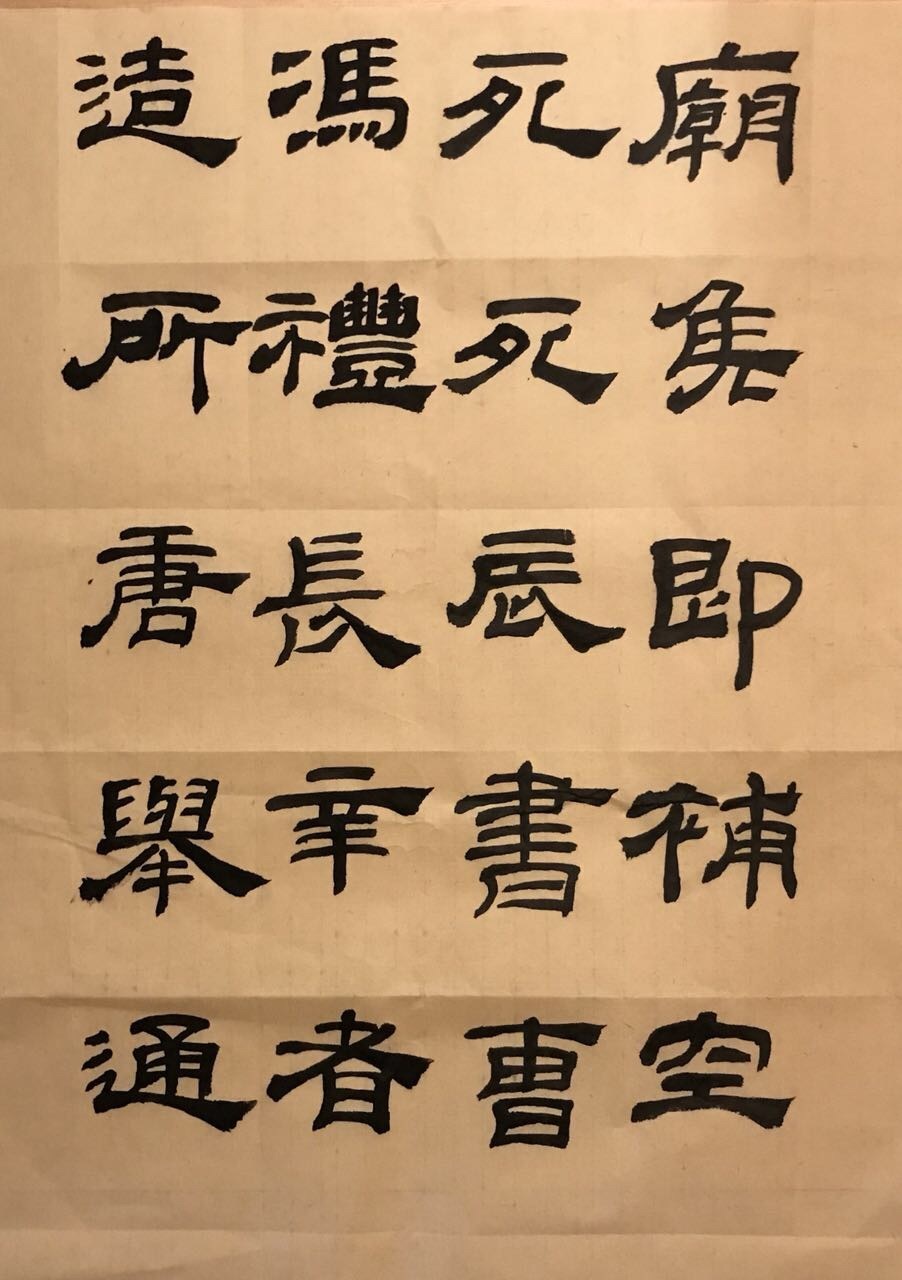 廟即補空
死死辰書曹
馮禮長辛者
造所唐舉通